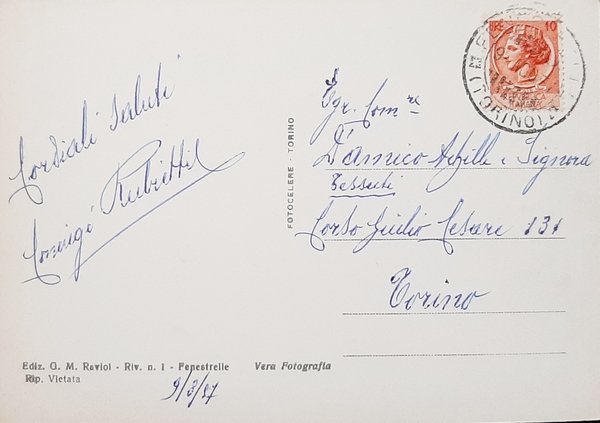 Cordiali saluti
Coniugi Rubietti
FOTOCELERE - TORINO
LIRE 10
(TORINO)
Sgr. Comre
D'Amico Achille e Signora
Tessuti
Corso Giulio Cesare 131
Torino
Ediz. G. M. Raviol - Riv. n. 1 - Fenestrelle
Vera Fotografia
Rip. Vietata
9/3/57